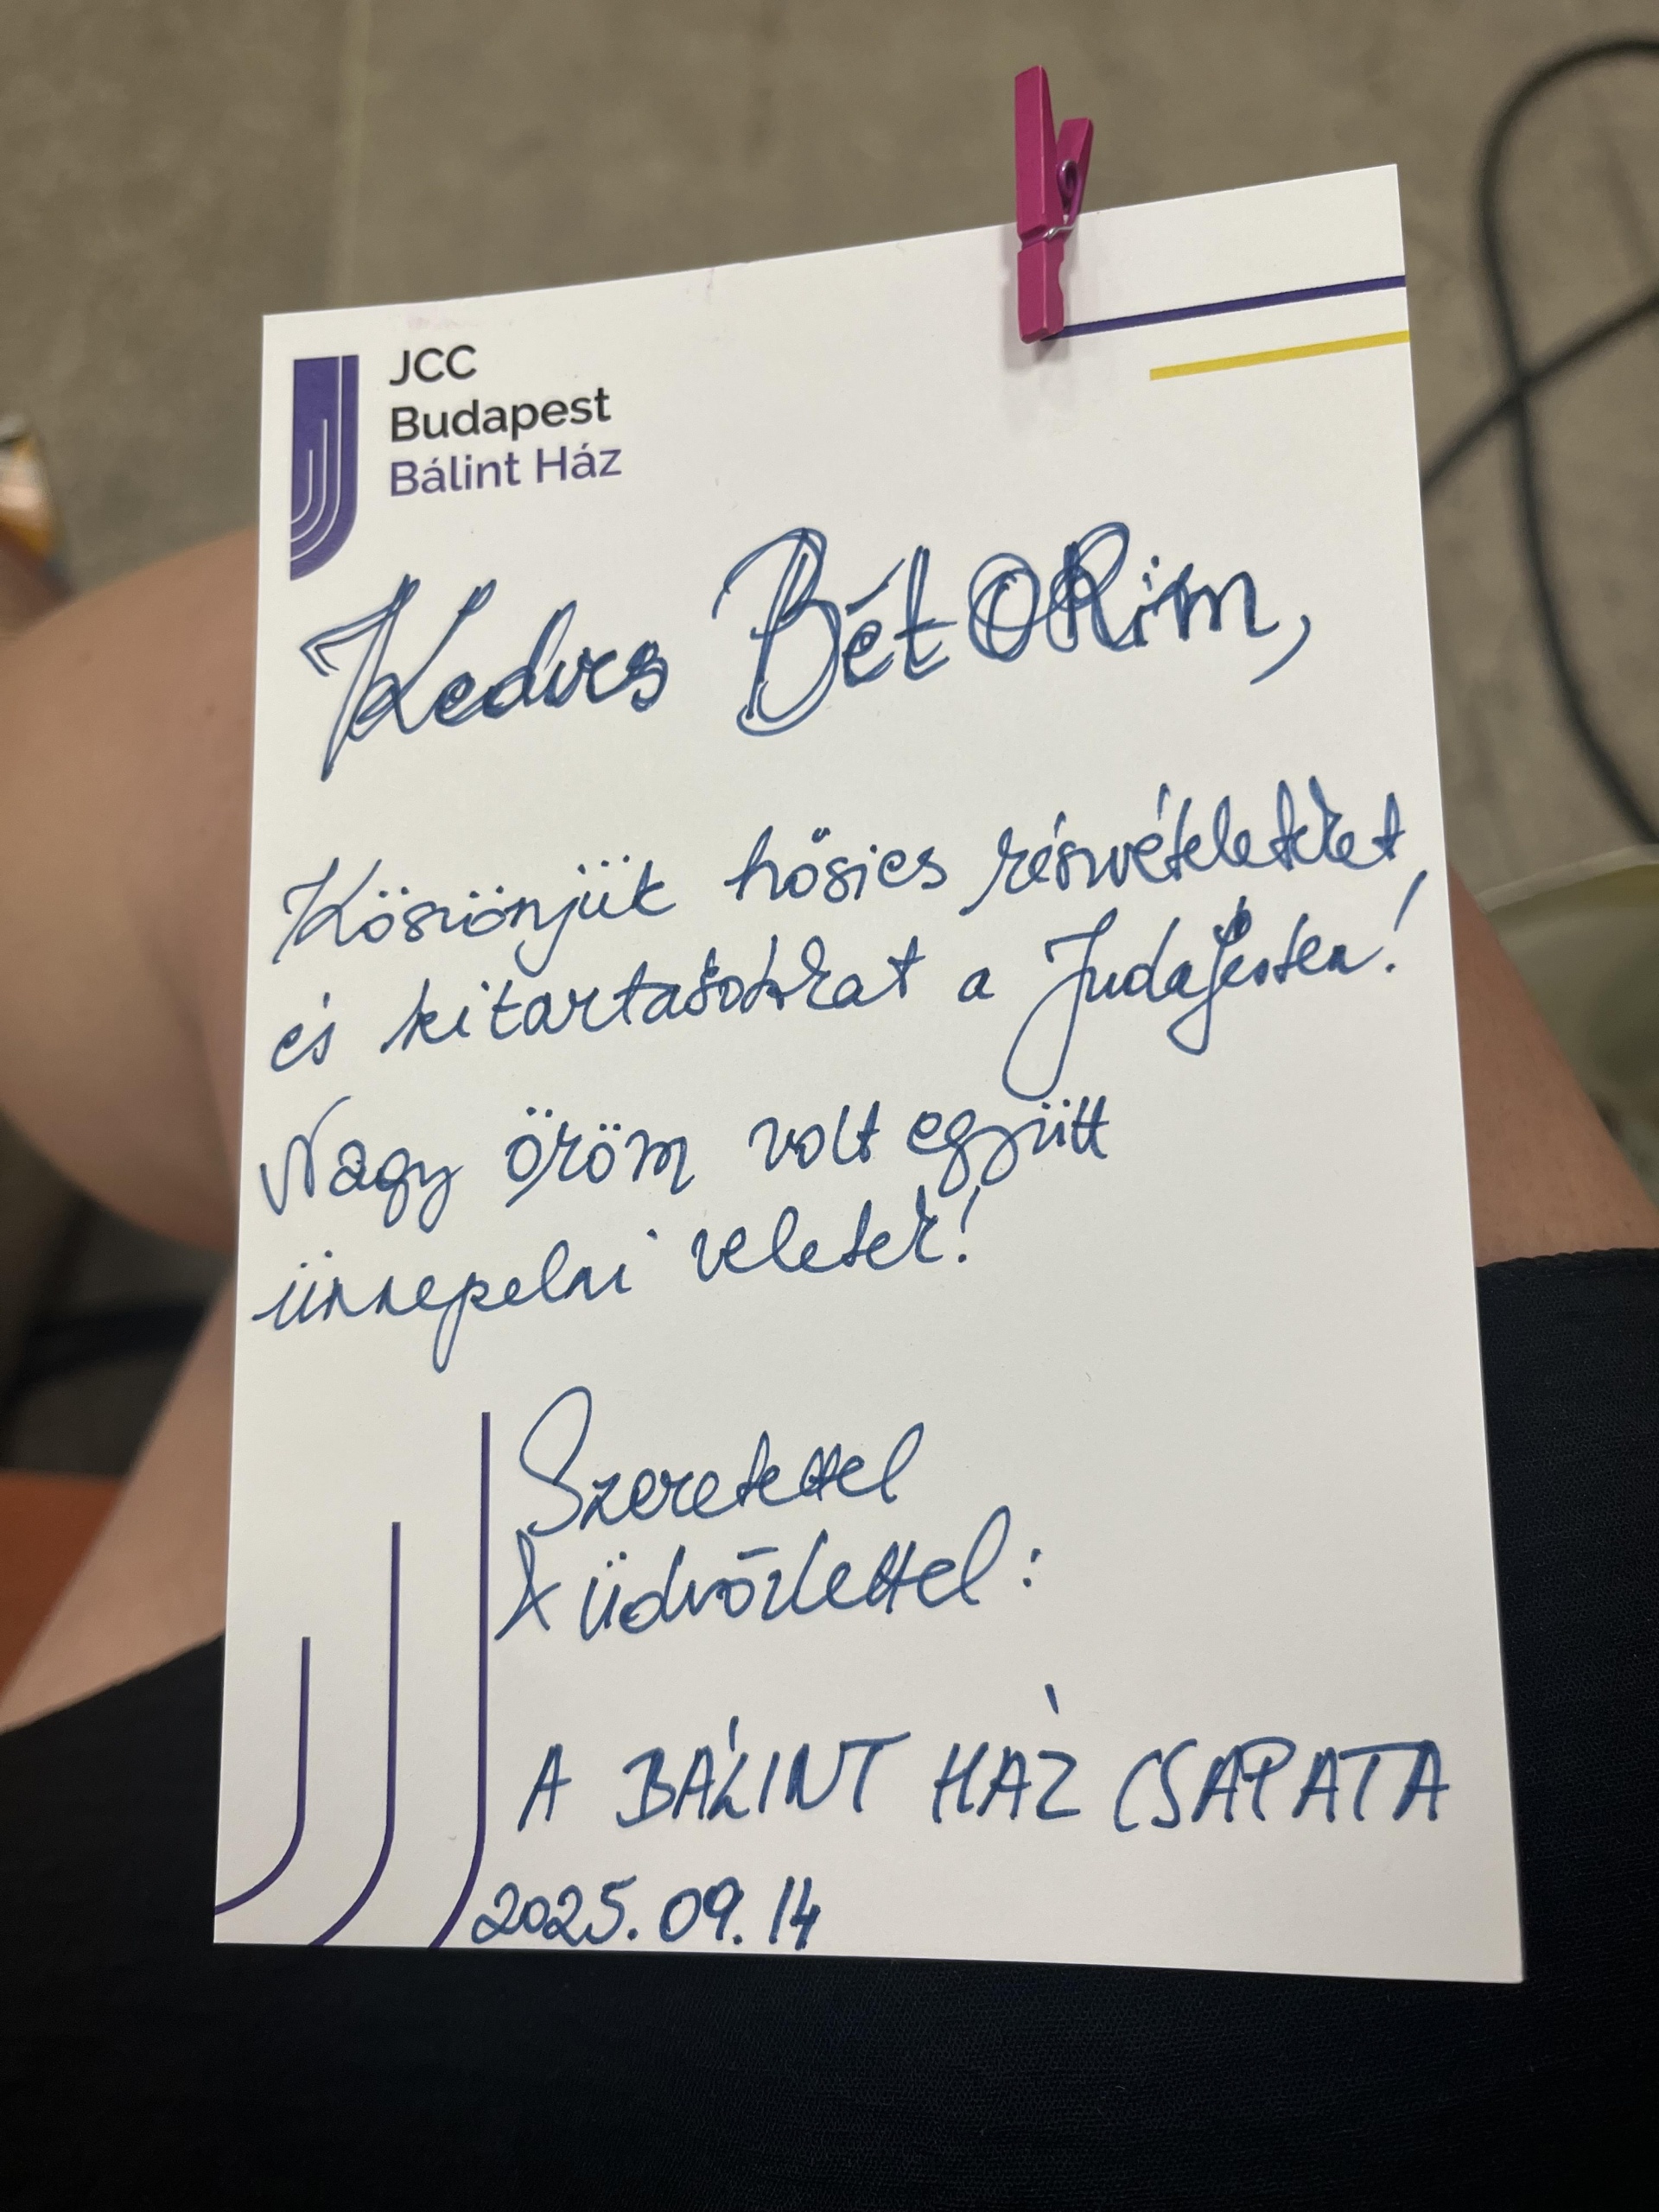 JCC
Budapest
Bálint Ház
Kedves BétORim,
Köszönjük hősies részvételeteket
és kitartásotokat a Judafesten!
Nagy öröm volt együtt
ünnepelni veletek!
Szeretettel
& üdvözlettel:
A BÁLINT HÁZ CSAPATA
2025.09.14